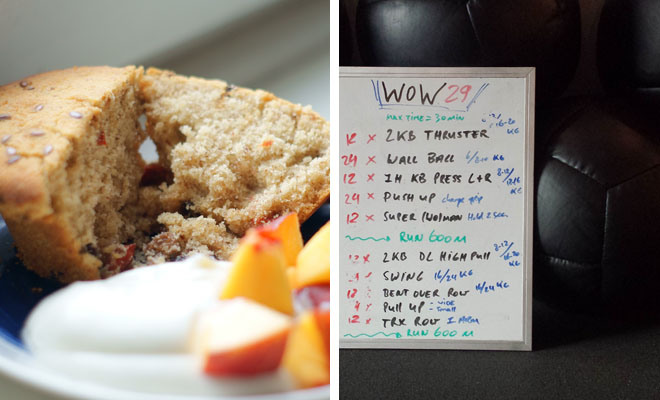 WOW 29
MAX TIME = 30 MIN
12 x 2KB THRUSTER 8-12/16-20 KG
24 x WALL BALL KG
12 x 1H KB PRESS L+R 8-12/ KG
24 x PUSH UP change grip
12 x SUPER (WO)MAN Hold 2 sec.
RUN 600 M
12 x 2KB DL HIGH PULL 8-12/16-20 KG
SWING 16/24 KG
BENT OVER ROW 16/24 KG
PULL UP - wide - small
12 x TRX ROW 1
RUN 600 M